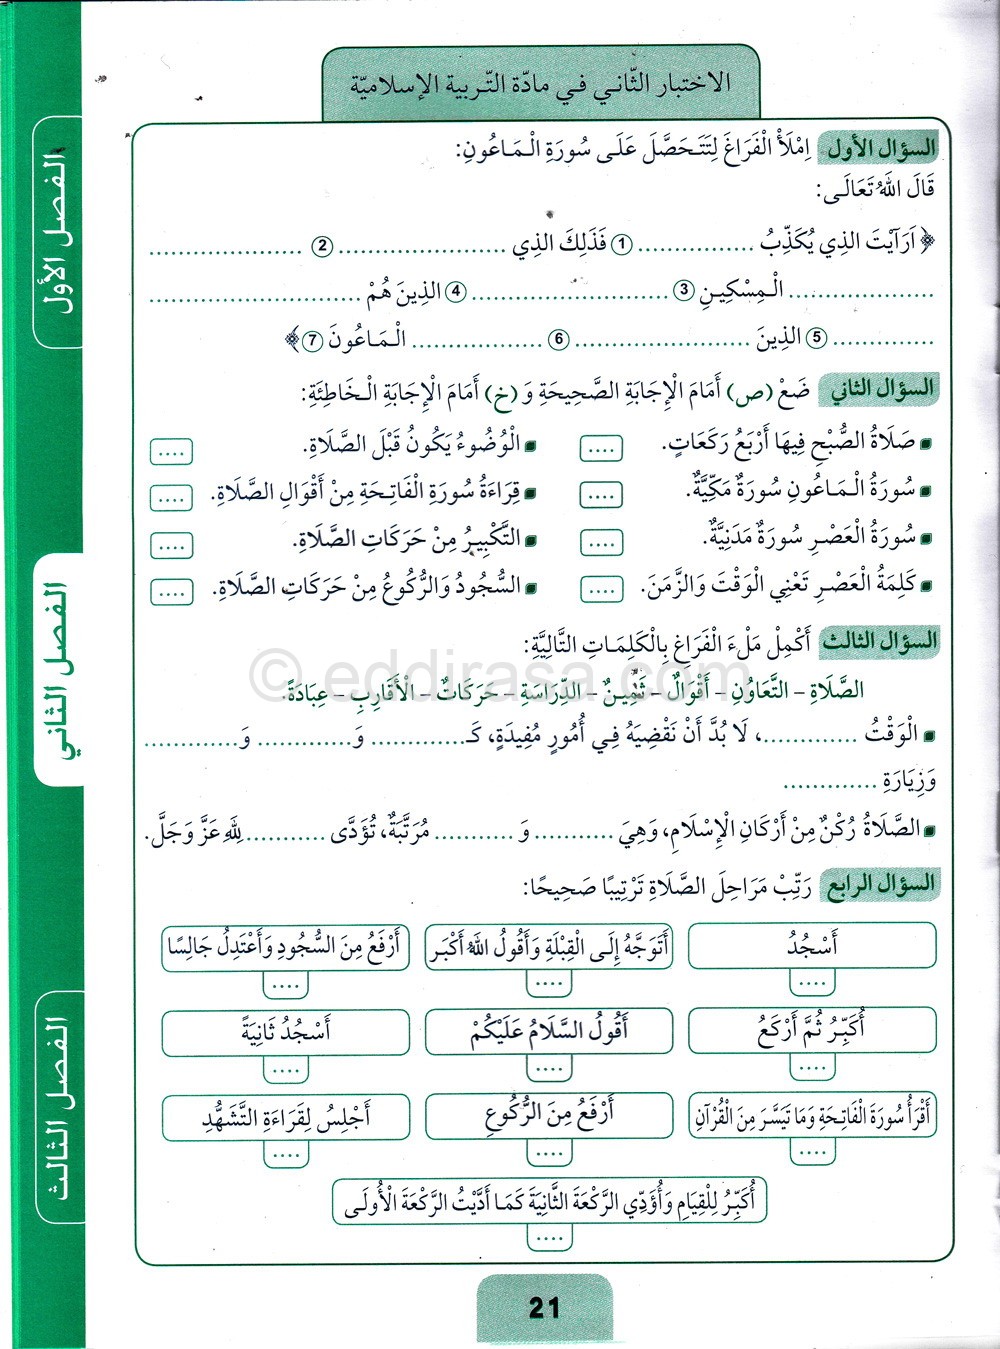 الاختبار الثّاني في مادّة التّربية الإسلاميّة
السؤال الأول اِمْلَأْ الْفَرَاغَ لِتَتَحَصَّلَ عَلَى سُورَةِ الْمَاعُونِ:
قَالَ اللهُ تَعَالَى:
﴿ اَرَآيْتَ الذِي يُكَذِّبُ ................ ① فَذَلِكَ الذِي ........................ ② ......................
..................... الْمِسْكِينِ ③ ............................ ④ الذِينَ هُمْ ..............................
............... ⑤ الذِينَ ......................... ⑥ ................... الْمَاعُونَ ⑦ ﴾
السؤال الثاني ضَعْ (ص) أَمَامَ الْإِجَابَةِ الصَّحِيحَةِ وَ(خ) أَمَامَ الْإِجَابَةِ الْخَاطِئَةِ:
صَلَاةُ الصُّبْحِ فِيهَا أَرْبَعُ رَكَعَاتٍ. .... الْوُضُوءُ يَكُونُ قَبْلَ الصَّلَاةِ. ....
سُورَةُ الْمَاعُونِ سُورَةٌ مَكِّيَّةٌ. .... قِرَاءَةُ سُورَةِ الْفَاتِحَةِ مِنْ أَقْوَالِ الصَّلَاةِ. ....
سُورَةُ الْعَصْرِ سُورَةٌ مَدَنِيَّةٌ. .... التَّكْبِيرُ مِنْ حَرَكَاتِ الصَّلَاةِ. ....
كَلِمَةُ الْعَصْرِ تَعْنِي الْوَقْتَ وَالزَّمَنَ. .... السُّجُودُ وَالرُّكُوعُ مِنْ حَرَكَاتِ الصَّلَاةِ. ....
السؤال الثالث أَكْمِلْ مَلْءَ الْفَرَاغِ بِالْكَلِمَاتِ التَّالِيَّةِ:
© eddirasa.com
الصَّلَاةِ - التَّعَاوُنِ - أَقْوَالٌ - ثَمِينٌ - الدِّرَاسَةِ - حَرَكَاتٌ - الْأَقَارِبِ - عِبَادَةً.
الْوَقْتُ .............، لَا بُدَّ أَنْ نَقْضِيَهُ فِي أُمُورٍ مُفِيدَةٍ، كَـ............. وَ............. وَ.............
وَزِيَارَةِ .............
الصَّلَاةُ رُكْنٌ مِنْ أَرْكَانِ الْإِسْلَامِ، وَهِيَ ........... وَ ........... مُرَتَّبَةٌ، تُؤَدَّى ........... لِلهِ عَزَّ وَجَلَّ.
السؤال الرابع رَتِّبْ مَرَاحِلَ الصَّلَاةِ تَرْتِيبًا صَحِيحًا:
أَسْجُدُ أَتَوَجَّهُ إِلَى الْقِبْلَةِ وَأَقُولُ اللهُ أَكْبَر أَرْفَعُ مِنَ السُّجُودِ وَأَعْتَدِلُ جَالِسًا
.... .... ....
أُكَبِّرُ ثُمَّ أَرْكَعُ أَقُولُ السَّلَامُ عَلَيْكُمْ أَسْجُدُ ثَانِيَةً
.... .... ....
أَقْرَأُ سُورَةَ الْفَاتِحَةِ وَمَا تَيَسَّرَ مِنَ الْقُرْآنِ أَرْفَعُ مِنَ الرُّكُوعِ أَجْلِسُ لِقَرَاءَةِ التَّشَهُّدِ
.... .... ....
أُكَبِّرُ لِلْقِيَامِ وَأُؤَدِّي الرَّكْعَةَ الثَّانِيَةَ كَمَا أَدَّيْتُ الرَّكْعَةَ الْأُولَى
....
21
الفصل الأول
الفصل الثاني
الفصل الثالث